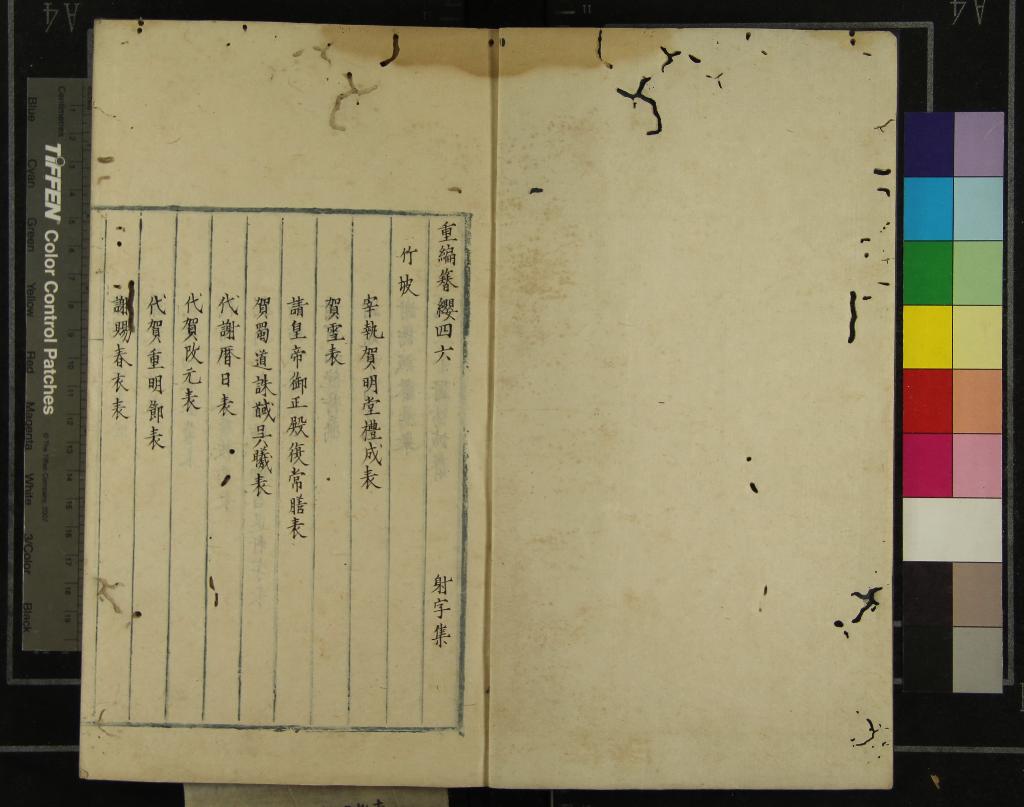 重編簪纓四六 射字集
竹坡
宰執賀明堂禮成表
賀雪表
請皇帝御正殿復常膳表
賀蜀道誅馘吳曦表
代謝暦日表
代賀改元表
代賀重明節表
謝賜春衣表
TIFFEN Color Control Patches
Centimetres
Blue
Cyan
Green
Yellow
Red
Magenta
White
3/Color
Black
A4
A4